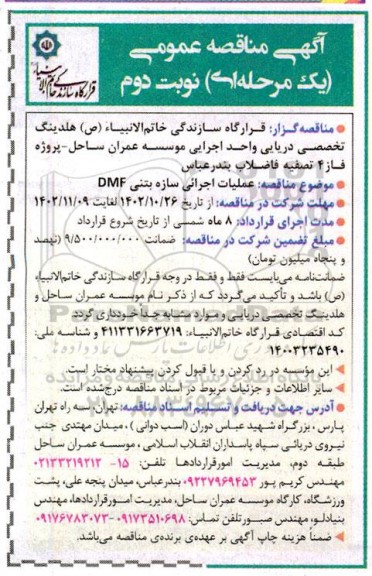 آگهی مناقصه عمومی
(یک مرحله‌ای) نوبت دوم
قرارگاه سازندگی خاتم الانبیاء
مناقصه‌گزار: قرارگاه سازندگی خاتم‌الانبیاءَ (ص) هلدینگ
تخصصی دریایی واحد اجرایی موسسه عمران ساحل-پروژه
فاز۴ تصفیه فاضلاب بندرعباس
موضوع مناقصه: عملیات اجرائی سازه بتنی DMF
مهلت شرکت در مناقصه: از تاریخ ۱۴۰۲/۱۰/۲۶ لغایت ۱۴۰۲/۱۱/۰۹
مدت اجرای قرارداد: ۸ ماه شمسی از تاریخ شروع قرارداد
مبلغ تضمین شرکت در مناقصه: ضمانت ۹/۵۰۰/۰۰۰/۰۰۰ (نهصد
و پنجاه میلیون تومان)
ضمانت‌نامه می‌بایست فقط و فقط در وجه قرارگاه سازندگی خاتم‌الانبیاء
(ص) باشد و تأکید می‌گردد که از ذکر نام موسسه عمران ساحل و
هلدینگ تخصصی دریایی و موارد مشابه جداً خودداری گردد
کد اقتصادی قرارگاه خاتم‌الانبیاء: ۴۱۱۳۳۱۶۶۳۷۱۹ و شناسه ملی:
۱۴۰۰۳۲۳۵۴۹۰
این مؤسسه در رد کردن و یا قبول کردن پیشنهاد مختار است.
سایر اطلاعات و جزئیات مربوط در اسناد مناقصه درج‌شده است.
آدرس جهت دریافت و تسلیم اسناد مناقصه: تهران سه راه تهران
پارس، بزرگراه شهید عباس دوران (اسب دوانی)، میدان مهتدی جنب
نیروی دریائی سپاه پاسداران انقلاب اسلامی، موسسه عمران ساحل
طبقه دوم، مدیریت امور قراردادها تلفن: ۱۵- ۰۲۱۳۳۲۱۹۲۱۳
مهندس کریم پور ۰۹۲۲۷۹۶۹۴۵۳ بندرعباس، میدان پنجه علی، پشت
ورزشگاه، کارگاه موسسه عمران ساحل، مدیریت امور قراردادها، مهندس
بنیادلو، مهندس صبور تلفن تماس: ۰۹۱۷۳۵۱۰۶۹۸-۰۹۱۷۶۷۸۳۰۷۳
ضمناً هزینه چاپ آگهی بر عهده‌ی برنده‌ی مناقصه می‌باشد.